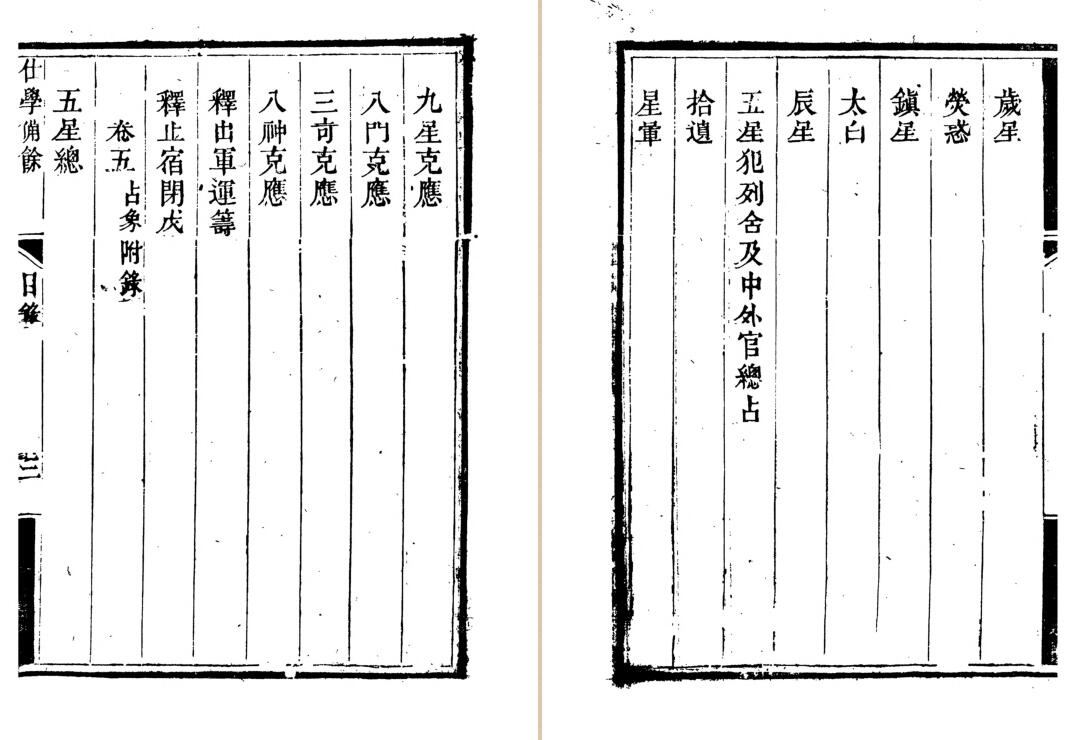 九星克應
八門克應
三奇克應
八神克應
釋出軍運籌
釋止宿閉戊
卷五 占象附錄
五星總
仕學備餘
目錄
三
歲星
熒惑
鎮星
太白
辰星
五星犯列舍及中外官總占
拾遺
星暈